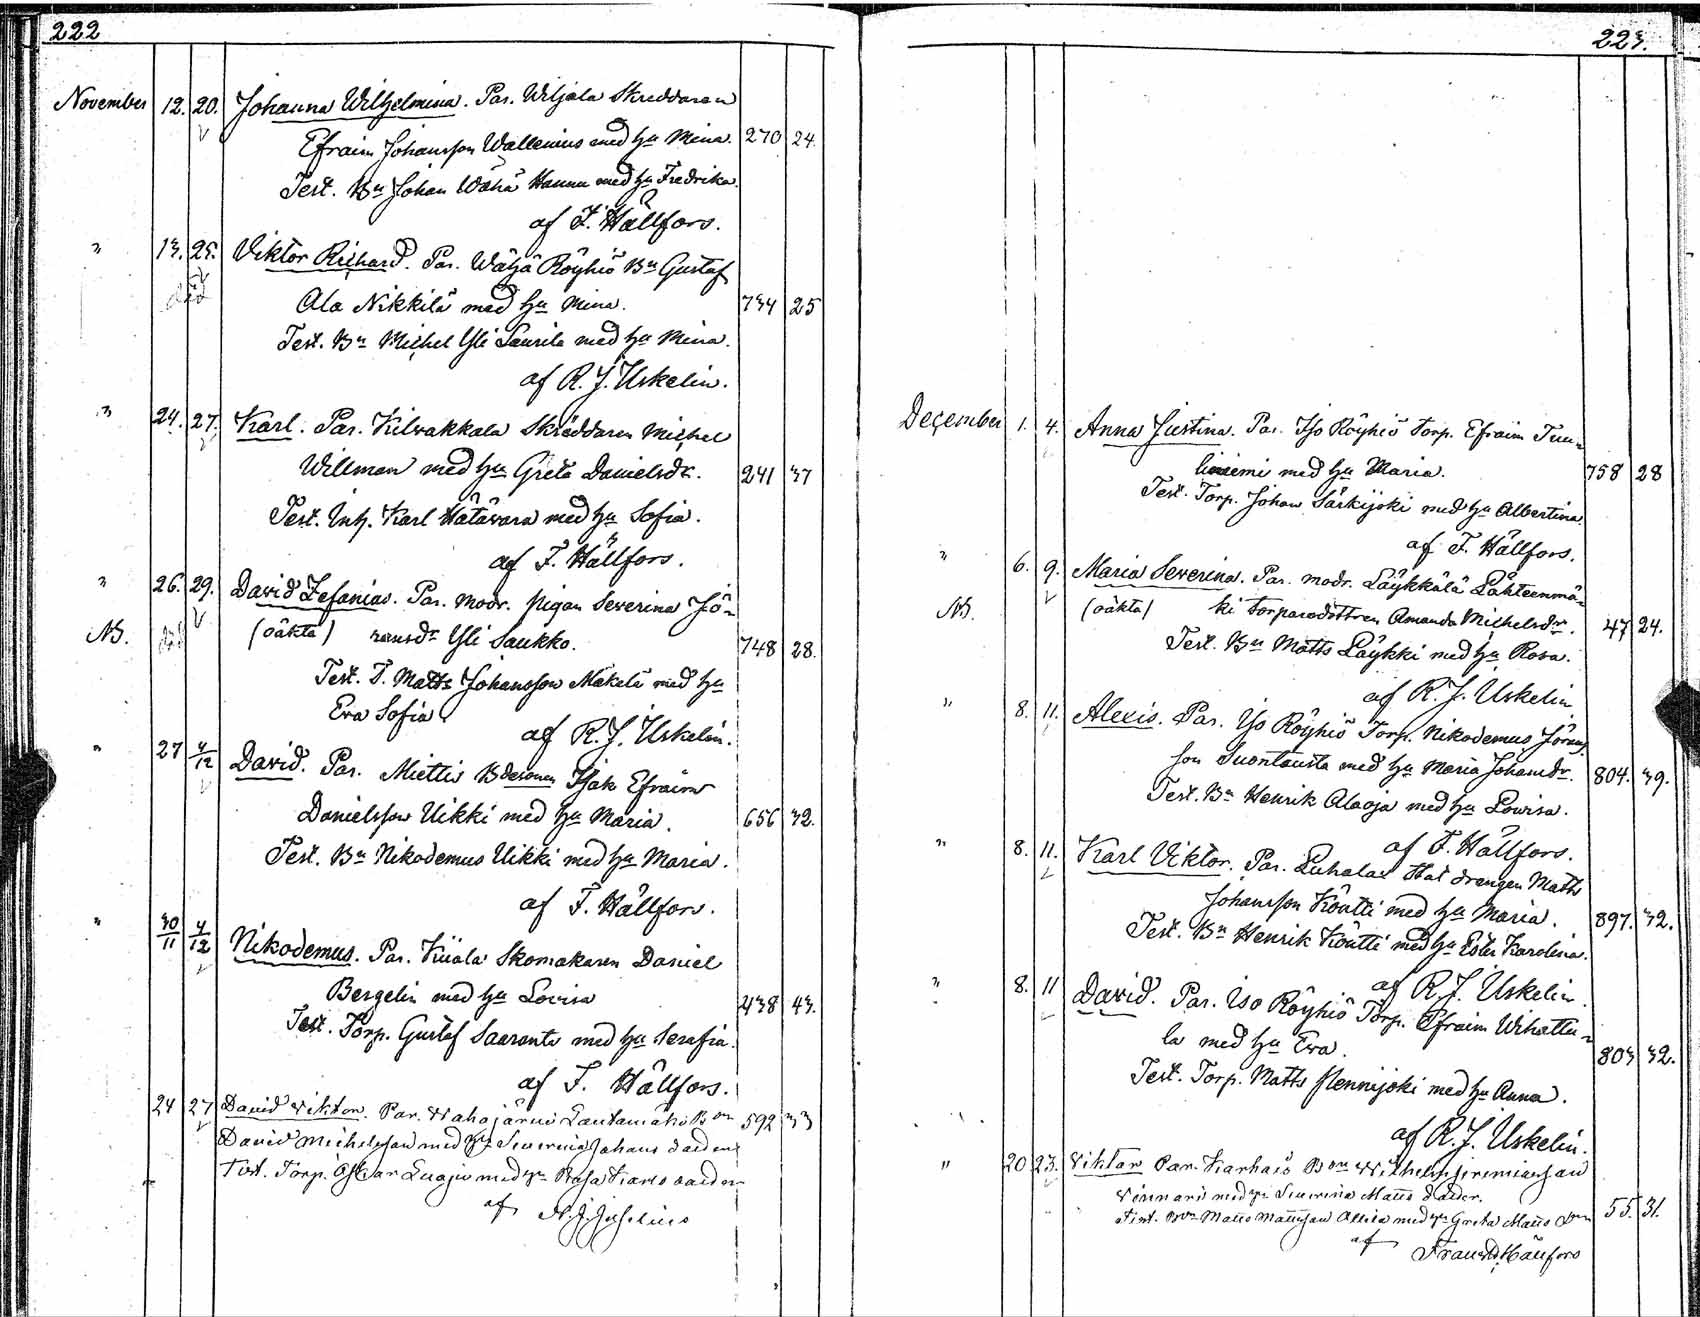 222
November 12. 20. Johanna Wilhelmina. Par. Wiljala Skreddaren
Efraim Johansson Wallenius med hu Mina. 270 24.
Test. Bn Johan Wähä Hannu med hu Fredrika.
af F. Hällfors.
" 13. 25. Viktor Richard. Par. Wähä Röyhiö Bn Gustaf
död
Ala Nikkilä med hu Mina. 734 25
Test. Bn Michel Yli Laurila med hu Mina.
af R. J. Uskelin.
" 24. 27. Karl. Par. Kilvakkala Skräddaren Michel
Willman med hu Greta Danielsdr. 241 37
Test. Inh. Karl Hätävara med hu Sofia.
af F. Hällfors.
" 26. 29. David Zefanias. Par. modr. pigan Severina Jö-
NB. död (oäkta) ransdr Yli Saukko. 748 28.
Test. T. Matts Johansson Mäkelä med hu
Eva Sofia
af R. J. Uskelin.
" 27 4/12 David. Par. Miettis Bdesonen Isak Efraim
Danielsson Uikki med hu Maria. 656 32.
Test. Bn Nikodemus Uikki med hu Maria.
af F. Hällfors.
" 30/11 4/12 Nikodemus. Par. Kiiala Skomakaren Daniel
Bergelin med hu Lovisa 438 43.
Test. Torp. Gustaf Saaranto med hu Serafia.
af F. Hällfors.
24 27 David Viktor. Par. Wahojärwi Lautamäki Bon 592 33
David Michelsson med hu Severina Johans daeder
Test. Torp. Oskar med hu Rosa
af
223.
December 1. 4. Anna Justina. Par. Iso Röyhiö Torp. Efraim Tuu-
liniemi med hu Maria. 758 28
Test. Torp. Johan Särkijoki med hu Albertina
af F. Hällfors.
" 6. 9. Maria Severina. Par. modr. Läykkälä Lähteenmä-
NB. (oäkta) ki torparedottren Amanda Michelsdr. 47 24.
Test. Bn Matts Läykki med hu Rosa.
af R. J. Uskelin
" 8. 11. Alexis. Par. Iso Röyhiö Torp. Nikodemus Jörans
son Suontausta med hu Maria Johansdr. 804. 39.
Test. Bn Henrik Alaoja med hu Lovisa.
af F. Hällfors.
" 8. 11. Karl Viktor. Par. Luhalax Hat drengen Matts
Johansson Köutti med hu Maria. 897. 32.
Test. Bn Henrik Köutti med hu Ester Karolina.
af R. J. Uskelin.
" 8. 11 David. Par. Iso Röyhiö Torp. Efraim Wihattu-
la med hu Eva. 803 32.
Test. Torp. Matts Hennijoki med hu Anna.
af R. J. Uskelin.
" 20 23. Viktor Par. Karhais Bon Wilhelm Jeremiasson
Vännari med hu Severina Matts daeder. 55. 31.
Test. Bon Matts Mattsson Allila med hu Greta Matts
af Hällfors